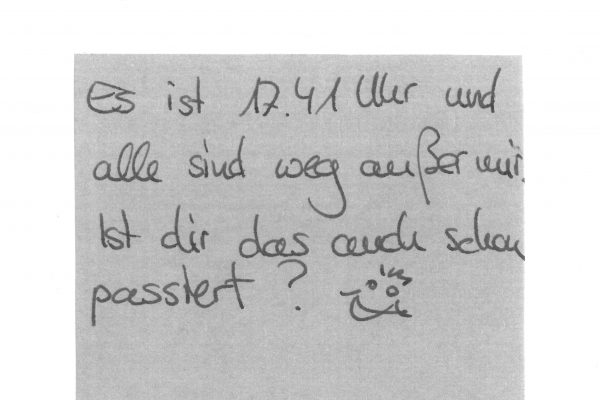 Es ist 17.41 Uhr und
alle sind weg außer mir.
Ist dir das auch schon
passiert?